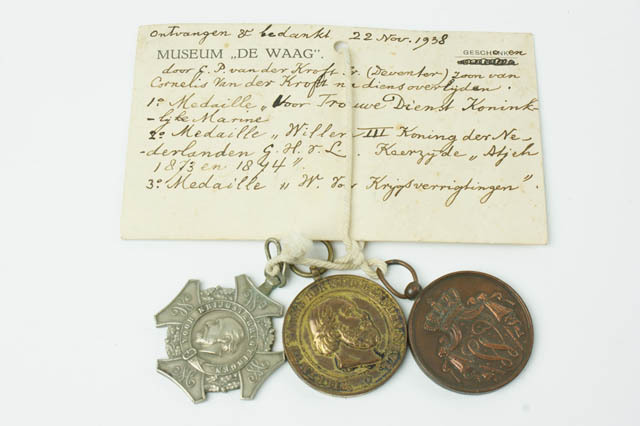 Ontvangen & bedankt 22 Nov. 1938
MUSEUM „DE WAAG”. GESCHONKEN
door C. P. van der Kroft Sr. (Deventer) zoon van
Cornelis Van der Kroft na diens overlijden.
1e Medaille „Voor Trouwe Dienst Konink-
-lijke Marine
2e Medaille „Willem III Koning der Ne-
-derlanden G. H. v. L. Keerzyde „Atjeh
1873 en 1874”.
3e Medaille „W. Voor Krijgsverrigtingen”.